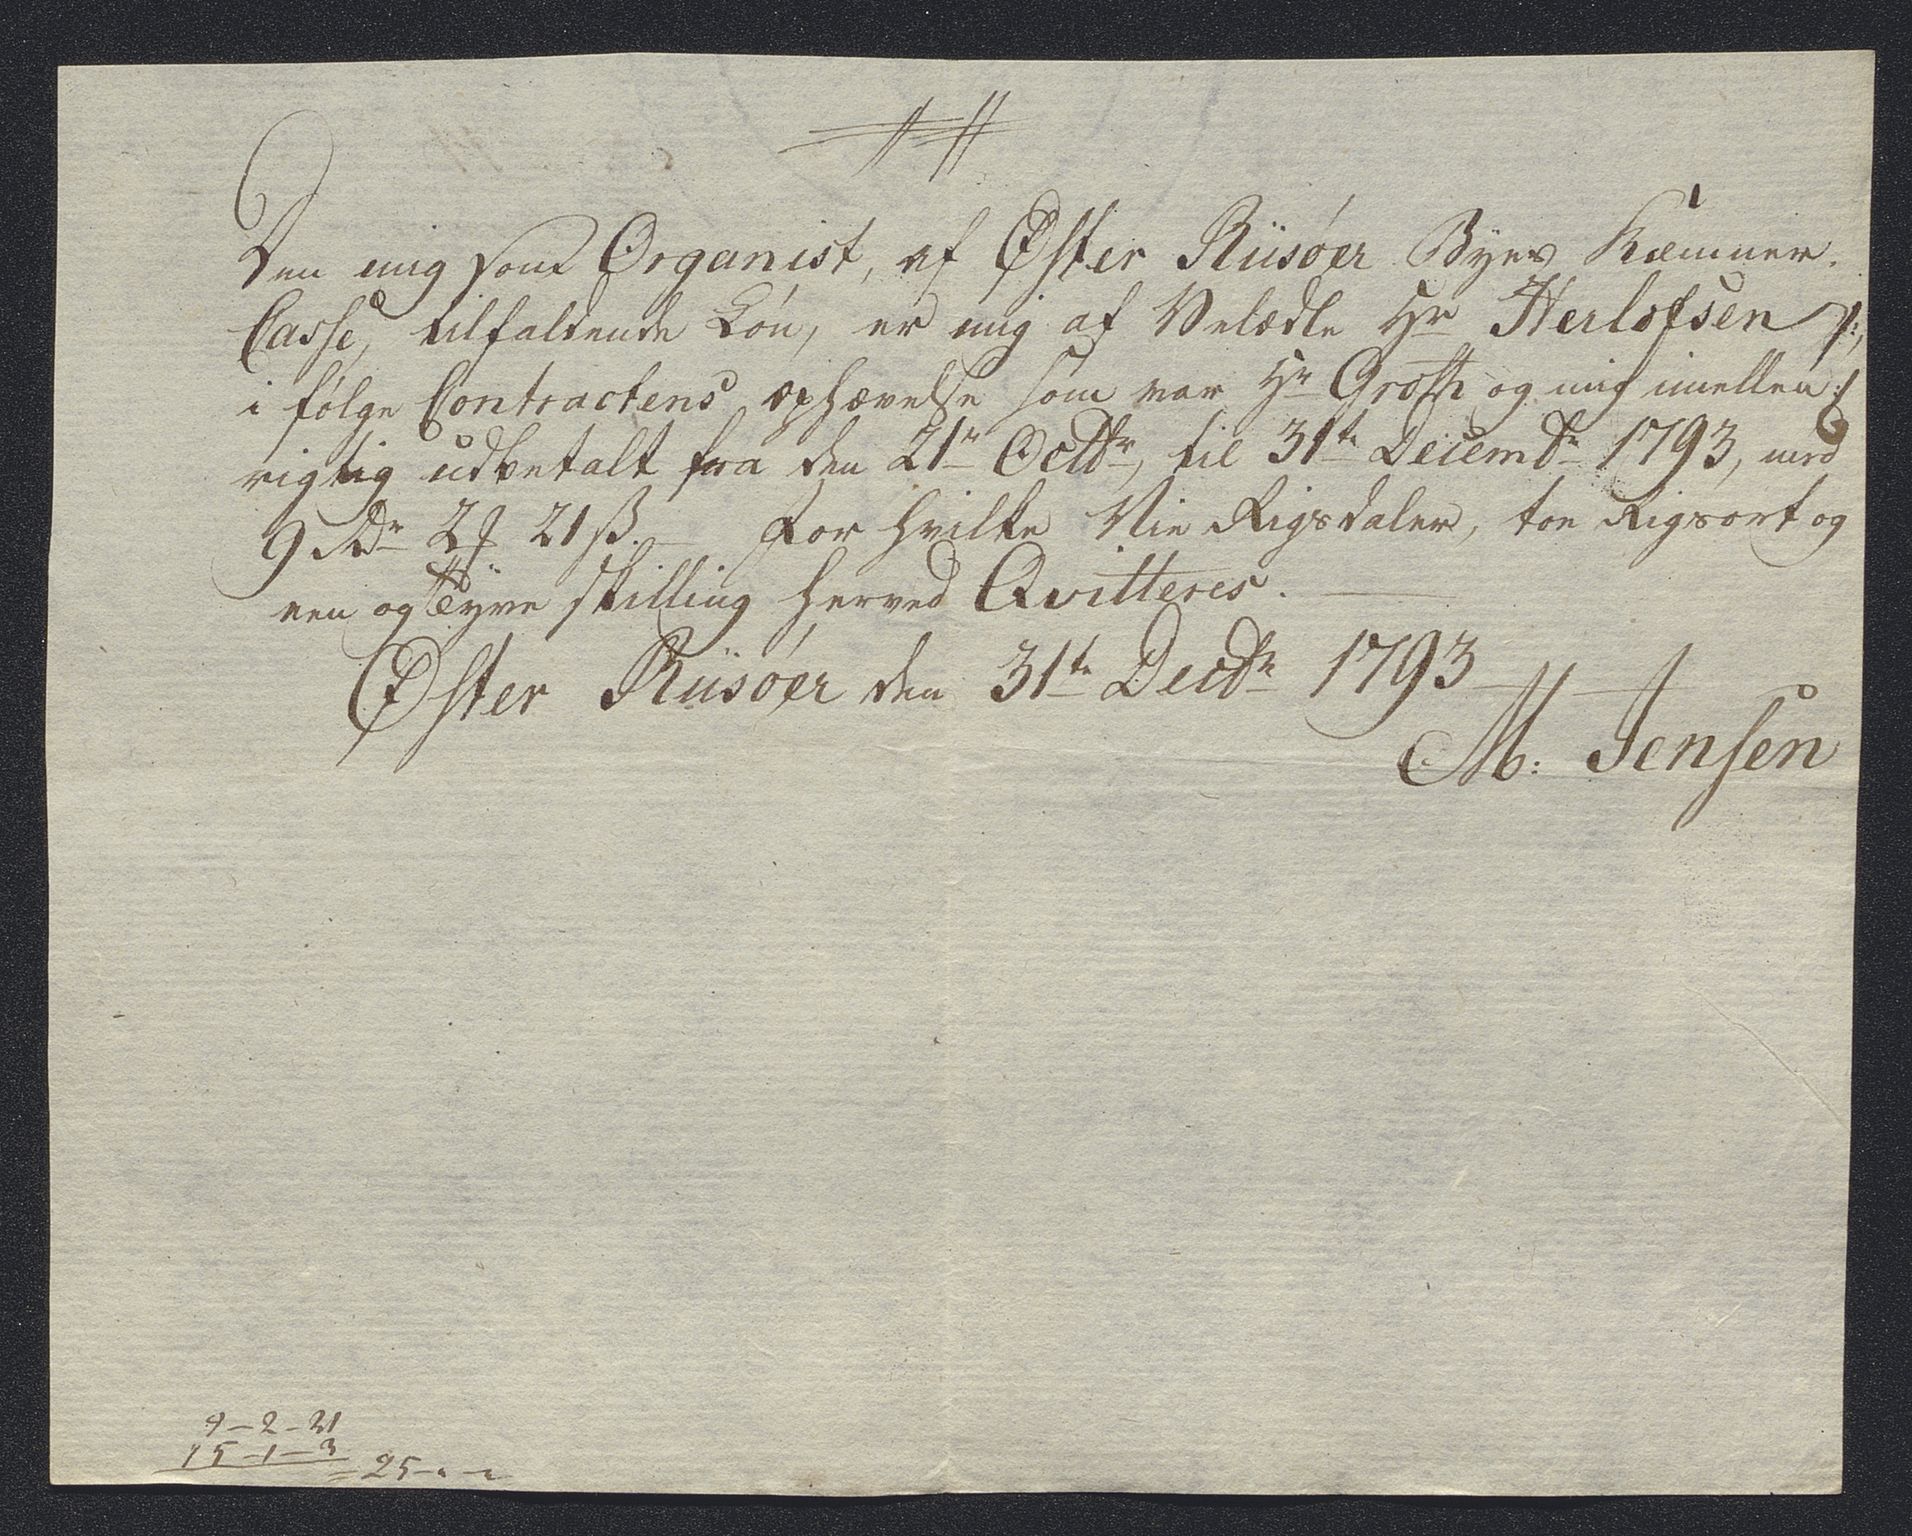 Den mig som Organist, af Øster Riisøer Byes Kæmner-
Casse, tilfaldende Løn, er mig af Velædle Hr Herlofsen /:
i følge Contractens ophævelse som var Hr Groth og mig imellem :/
rigtig udbetalt fra den 21de Octbr, til 31te Decembr 1793, med
9 Rdr 2 21 ß. — For hvilke Nie Rigsdaler, toe Rigsort og
een og Tyve skilling herved Qvitteres. —
Øster Riisøer den 31te Decbr 1793
M: Jensen
9-2-21
15-1-3
25-"-"